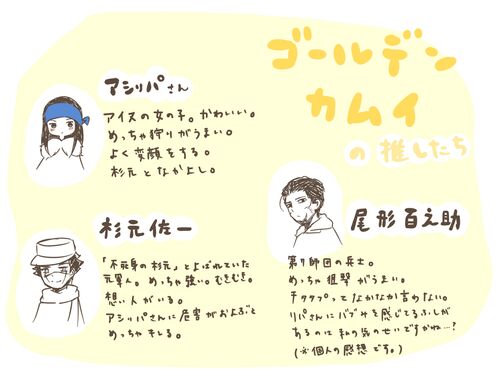 ゴールデン
カムイ
の推したち
アシリパさん
アイヌの女の子。かわいい。
めっちゃ狩りがうまい。
よく変顔をする。
杉元となかよし。
杉元佐一
「不死身の杉元」とよばれていた
元軍人。めっちゃ強い。むきむき。
想い人がいる。
アシリパさんに危害がおよぶと
めっちゃキレる。
尾形百之助
第7師団の兵士。
めっちゃ狙撃がうまい。
チタタプってなかなか言わない。
リパさんにバブみを感じてるふしが
あるのは私の気のせいですかね…?
(※個人の感想です。)